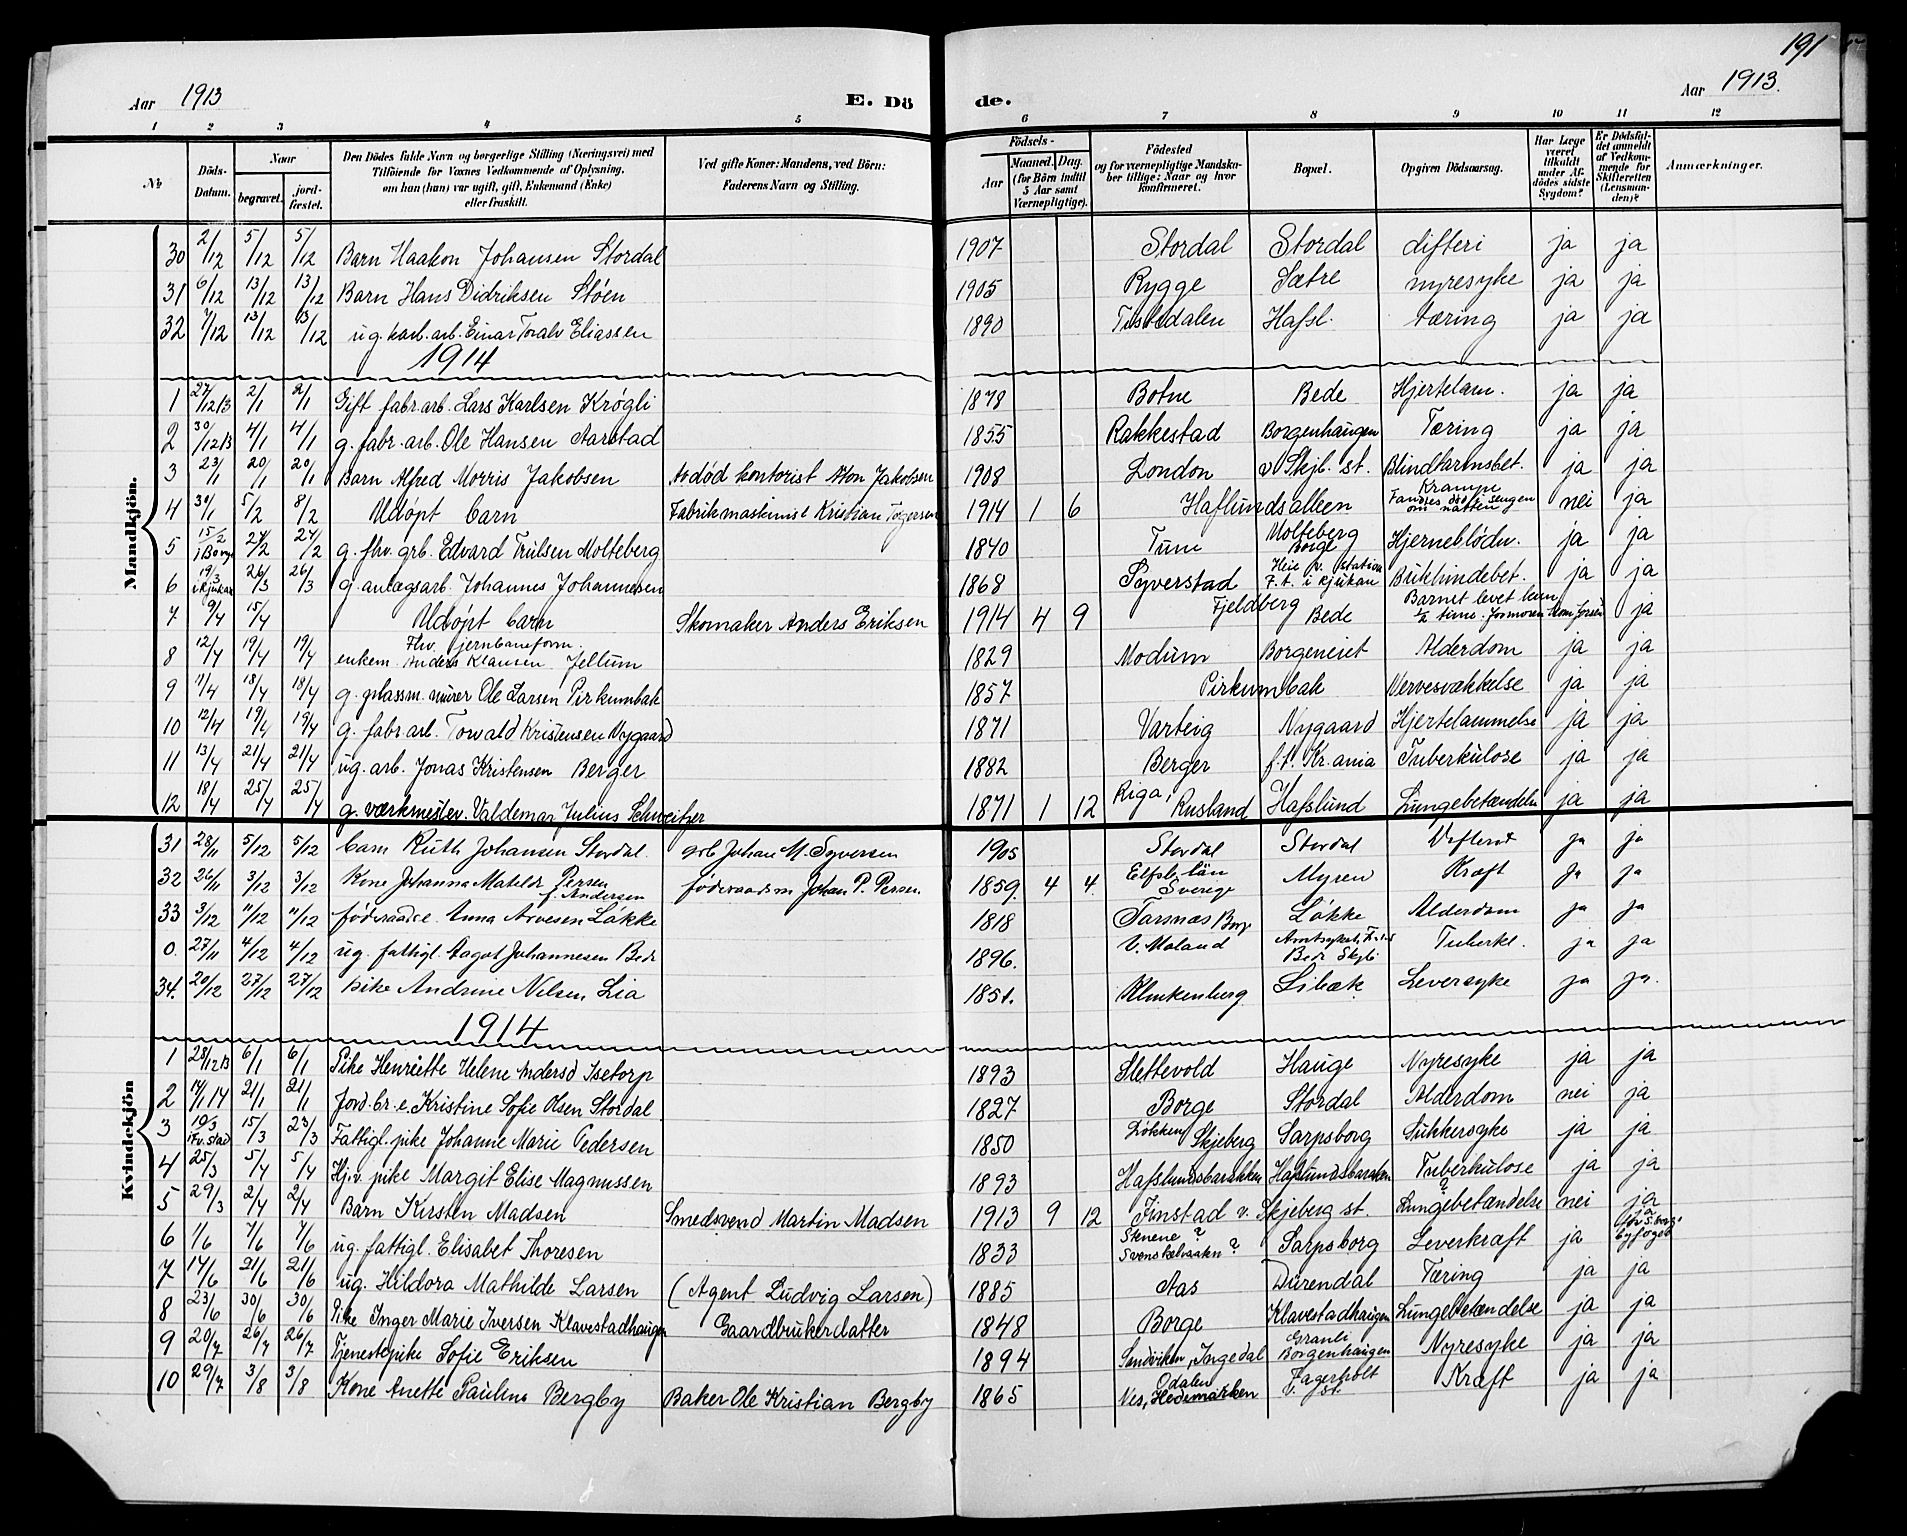 191
Aar 1913 E. Dö de. Aar 1913.
1 2 3 4 5 6 7 8 9 10 11 12
No Döds-Datum. Naar begravet. jordfæstet. Den Dödes fulde Navn og borgerlige Stilling (Næringsvei) med Tilföiende for Voxnes Vedkommende af Oplysning, om han (hun) var ugift, gift, Enkemand (Enke) eller fraskilt. Ved gifte Koner: Mandens, ved Börn: Faderens Navn og Stilling. Födsels- Aar Maaned. Dag. (for Börn indtil 5 Aar samt Værnepligtige). Födested og for værnepligtige Mandskaber tillige: Naar og hvor konfirmeret. Bopæl. Opgiven Dödsaarsag. Har Læge været tilkaldt under Afdödes sidste Sygdom? Er Dödsfaldet anmeldt af Vedkommende for Skifteretten (Lensmanden)? Anmærkninger.
Mandkjön.
30 2/12 5/12 5/12 Barn Haakon Johansen Stordal 1907 Stordal Stordal difteri ja ja
31 6/12 13/12 13/12 Barn Hans Didriksen Støen 1905 Rygge Sætre nyresyke ja ja
32 7/12 13/12 13/12 ug. karl. arb. Einar Toralv Eliassen 1890 Tistedalen Hafsl. tæring ja ja
1914
1 27/12 13 2/1 2/1 Gift fabr. arb. Lars Karlsen Krøgli 1878 Botne Bede Hjertelam. ja ja
2 30/12 13 4/1 4/1 g. fabr. arb. Ole Hansen Aarstad 1855 Rakkestad Borgenhaugen Tæring ja ja
3 23/1 20/1 20/1 Barn Alfred Morris Jakobsen Avdød kontorist Aton Jakobsen 1908 London v Skjb. st. Blindtarmsbet. ja ja
4 30/1 5/2 8/2 Udøpt barn Fabrikmaskinist Kristian Torgersen 1914 1 6 Haflundsalleen Krampe Fandtes død i sengen om natten nei ja
5 15/2 i Borge 27/2 27/2 g. fhv. grb. Edvard Trulsen Molteberg 1840 Tune Molteberg Borge Hjerneblödn. ja ja
6 19/3 i Rjukan 26/3 26/3 g. anlægsarb. Johannes Johannesen 1868 Syverstad Heie v. station F. t. i Rjukan Bukhindebet. ja ja
7 9/4 15/4 Udøpt barn Skomaker Anders Eriksen 1914 4 9 Fjeldberg Bede Barnet levet kun 1/2 time. ja
8 12/4 19/4 19/4 enkem. Fhv. jernbaneform. Anders Klausen Jellum 1829 Modum Borgeneiet Alderdom ja ja
9 11/4 18/4 18/4 g. grbassm. murer Ole Larsen Pirkumbak 1857 Pirkumbak Nervesvækkelse ja ja
10 12/4 19/4 19/4 g. fabr. arb. Torvald Kristensen Nygaard 1871 Varteig Nygaard Hjertelammelse ja ja
11 13/4 21/4 21/4 ug. arb. Jonas Kristensen Berger 1882 Berger f. t. Kr.ania Tuberkulose ja ja
12 18/4 25/4 25/4 g. værkmester Valdemar Julius Schweitzer 1871 1 12 Riga, Rusland Hafslund Lungebetændelse ja ja
Kvindekjön
31 28/11 5/12 5/12 barn Ruth Johansen Stordal. grb Johan M. Syversen 1905 Stordal Stordal Difterit ja ja
32 26/11 3/12 3/12 Kone Johanna Matilde Persen f. Andersen föderaadsm Johan P. Persen. 1859. 4 4. Elfsb. län Sverige Myren Kræft ja ja
33 3/12 11/12 11/12 föderaadse. Anna Arvesen Løkke 1818 Torsnæs Borge Løkke Alderdom ja ja
0. 27/11 4/12 4/12 ug. fattigl. Aagot Johannesen Bede 1896. V. Moland Bede Skjb Tuberkl. ja ja
34. 20/12 27/12 27/12 Pike Andrine Nilsen Lia 1851. Klinkenberg Libæk Leversyke ja ja.
1914
1 28/12 13 6/1 6/1 Pike Henriette Helene Andersd Isetorp 1893 Slettevold Hauge Nyresyke ja ja
2 14/1 14 21/1 21/1 Jord. br. e. Kristine Sofie Olsen Stordal. 1827 Borge Stordal Alderdom nei ja
3 10/3 i Fr.stad 15/3 23/3 Fattigl. pike Johanne Marie Pedersen 1850 Løkken, Skjeberg Sarpsborg Sukkersyke ja ja
4 25/3 5/4 5/4 Hjv. pike Margit Elise Magnussen 1893 Hafslundsbarakken Hafslundsbarakken Tuberkulose ja ja
5 29/3 2/4 2/4 Barn Kirsten Madsen Smedsvend Martin Madsen 1913 9 12 Finstad v. Skjeberg st. ? Lungebetændelse nei ja
6 1/6 7/6 7/6 ug. fattigl. Elisabet Thoresen 1833 Stenene ? ? Sarpsborg Leverkræft ja ja for S.borgs byfoged
7 14/6 21/6 21/6 ug. Hildora Mathilde Larsen (Agent Ludvig Larsen) 1885 Aas Durendal Tæring ja ja
8 23/6 30/6 30/6 Pike Inger Marie Iversen Klavestadhaugen Gaardbrukerdatter 1848 Borge Klavestadhaugen Lungebetændelse ja ja
9 20/7 26/7 26/7 Tjenestepike Sofie Eriksen 1894 Sandviken, Ingedal Granli Borgenhaugen Nyresyke ja ja
10 29/7 3/8 3/8 Kone Anette Pauline Bergby Baker Ole Kristian Bergby 1865 Odalen Nes, Hedemarken Fagerholt v. st. Kræft ja ja